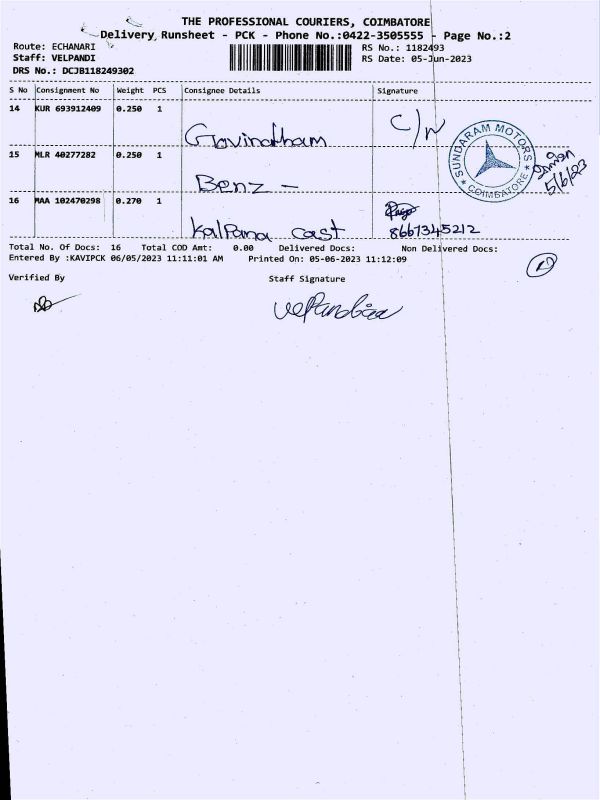 THE PROFESSIONAL COURIERS, COIMBATORE
Delivery Runsheet - PCK - Phone No.:0422-3505555 - Page No.:2
Route: ECHANARI RS No.: 1182493
Staff: VELPANDI RS Date: 05-Jun-2023
DRS No.: DCJB118249302
S No Consignment No Weight PCS Consignee Details Signature
14 KUR 693912409 0.250 1
C/N
Govindham
15 MLR 40277282 0.250 1
Benz -
SUNDARAM MOTORS
COIMBATORE
5/6/23
16 MAA 102470298 0.270 1
Kalpana cast 8667345212
Total No. Of Docs: 16 Total COD Amt: 0.00 Delivered Docs: Non Delivered Docs:
Entered By :KAVIPCK 06/05/2023 11:11:01 AM Printed On: 05-06-2023 11:12:09
Verified By Staff Signature
velPandian